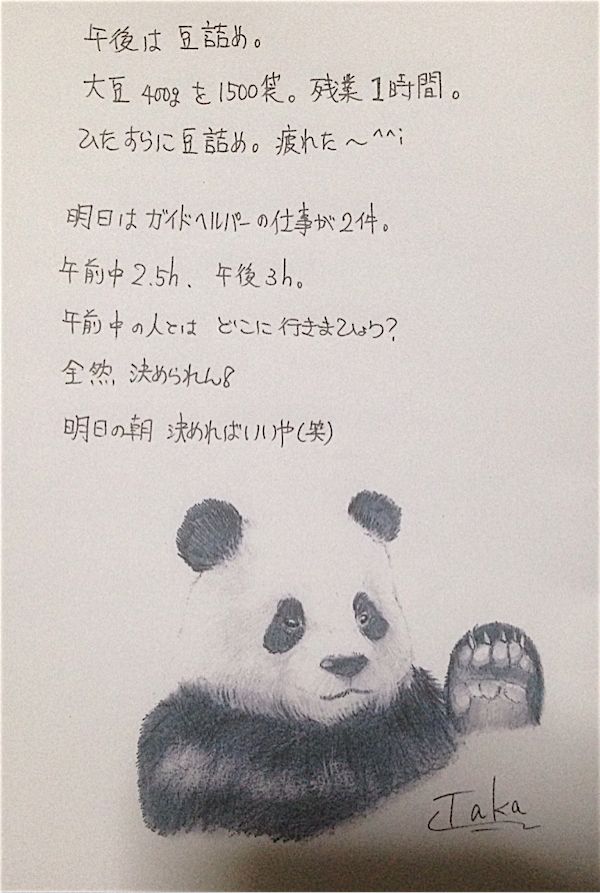 午後は 豆詰め。
大豆 400gを1500袋。残業1時間。
ひたすらに豆詰め。疲れた〜^^;
明日は ガイドヘルパーの仕事が2件。
午前中2.5h、午後3h。
午前中の人とは どこに行きまひょう?
全然、決められん8
明日の朝 決めればいいや(笑)
Taka